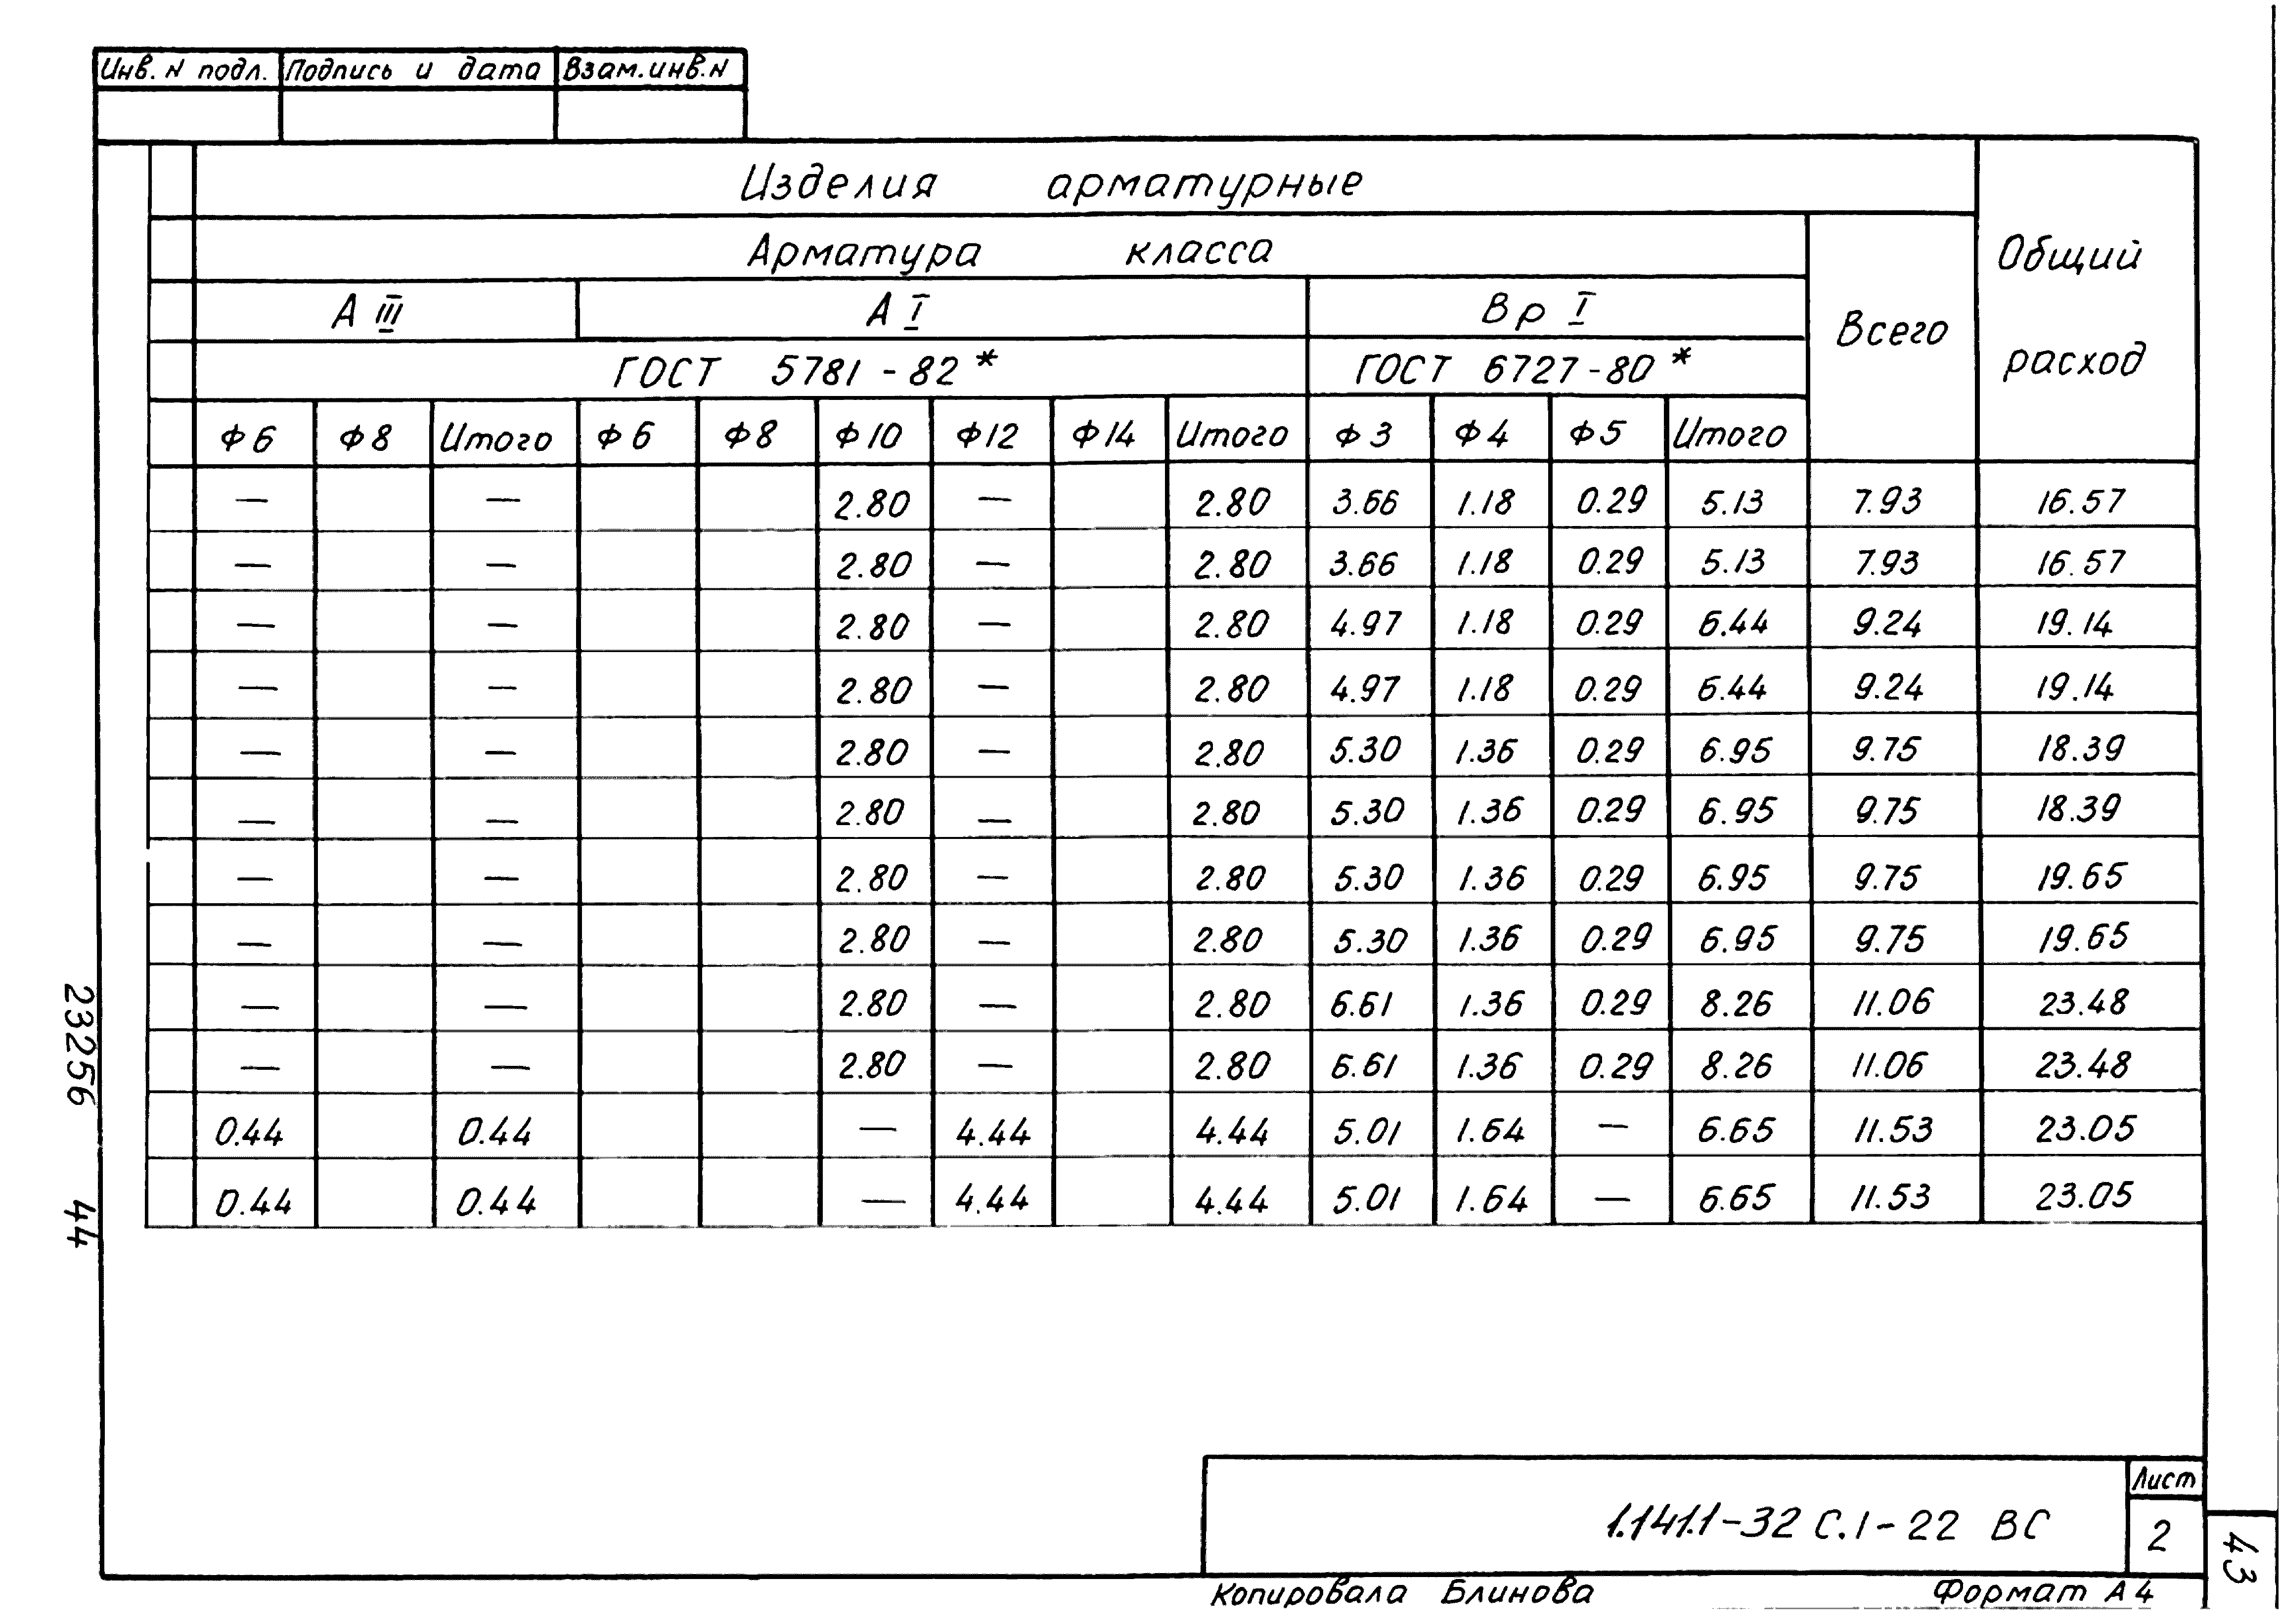 Инв. N подл. Подпись и дата Взам.инв.N
Изделия арматурные
Арматура класса
Общий расход
А III А I Вр I
Всего
ГОСТ 5781-82* ГОСТ 6727-80*
Ф6 Ф8 Итого Ф6 Ф8 Ф10 Ф12 Ф14 Итого Ф3 Ф4 Ф5 Итого
— — 2.80 — 2.80 3.66 1.18 0.29 5.13 7.93 16.57
— — 2.80 — 2.80 3.66 1.18 0.29 5.13 7.93 16.57
— — 2.80 — 2.80 4.97 1.18 0.29 6.44 9.24 19.14
— — 2.80 — 2.80 4.97 1.18 0.29 6.44 9.24 19.14
— — 2.80 — 2.80 5.30 1.36 0.29 6.95 9.75 18.39
— — 2.80 — 2.80 5.30 1.36 0.29 6.95 9.75 18.39
— — 2.80 — 2.80 5.30 1.36 0.29 6.95 9.75 19.65
— — 2.80 — 2.80 5.30 1.36 0.29 6.95 9.75 19.65
— — 2.80 — 2.80 6.61 1.36 0.29 8.26 11.06 23.48
— — 2.80 — 2.80 6.61 1.36 0.29 8.26 11.06 23.48
0.44 0.44 — 4.44 4.44 5.01 1.64 — 6.65 11.53 23.05
0.44 0.44 — 4.44 4.44 5.01 1.64 — 6.65 11.53 23.05
23256 44
1.141.1-32 С.1-22 ВС
Лист
2
43
Копировала Блинова Формат А4